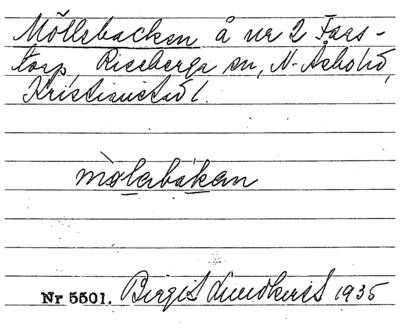 Möllebacken å nr 2 Fars-
torp, Riseberga sn, N. Åsbo hd,
Kristianstad l.
mòlebakan
Nr 5501. Birgit Lundkvist 1935